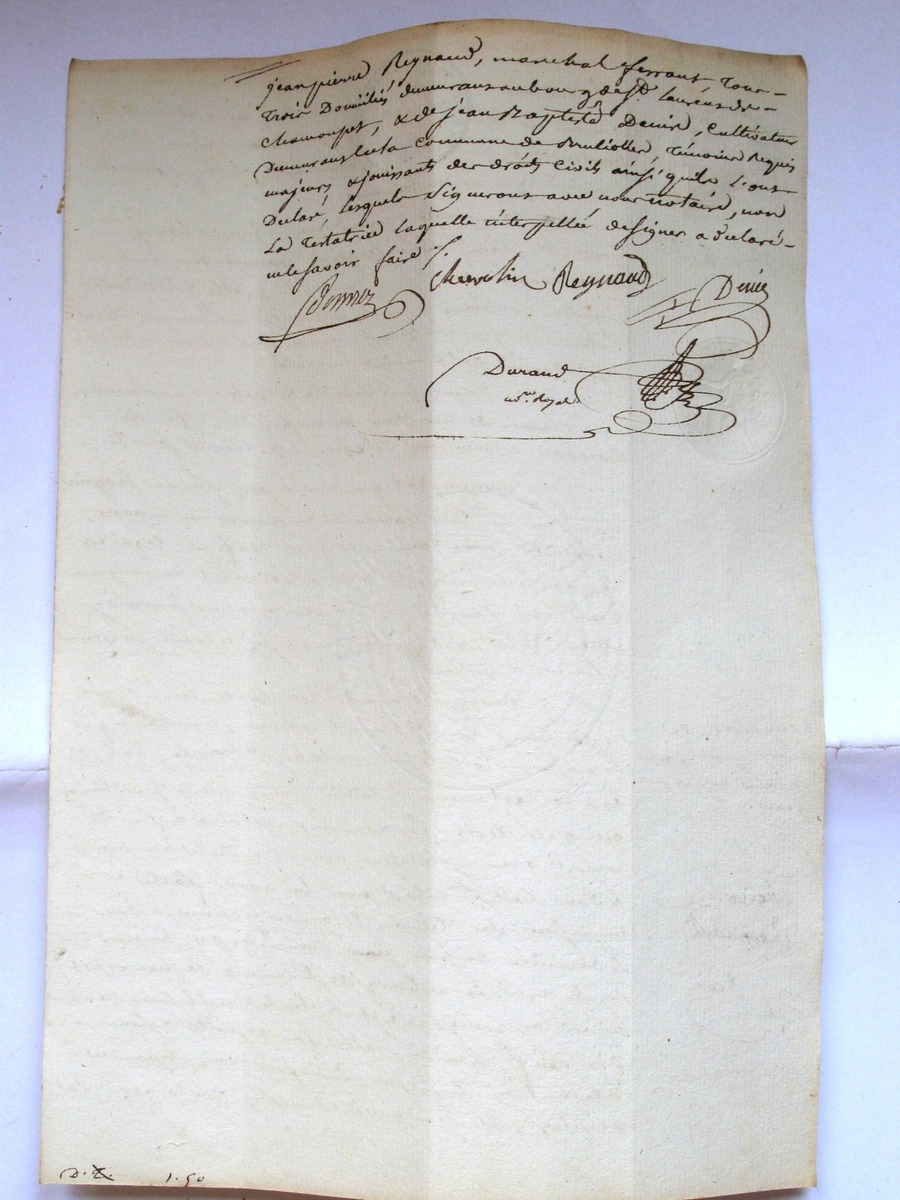 jean pierre Reynaud, marechal ferrant, tous-
trois Domiciliés demeurans au bourg de St. Laurens de-
chamouset, & de jean Baptiste Denis, Cultivateur
Demeurant en la commune de Brulliolles, témoins Requis
majeurs & jouissants des droits Civils ainsi qu'ils l'ont
Déclaré, lesquels Signerons avec nous notaire, non
La Testatrice laquelle interpellée de signer a déclaré-
ne le savoir faire /.
Reynaud Denis
Durand
nore. Royal
1.50